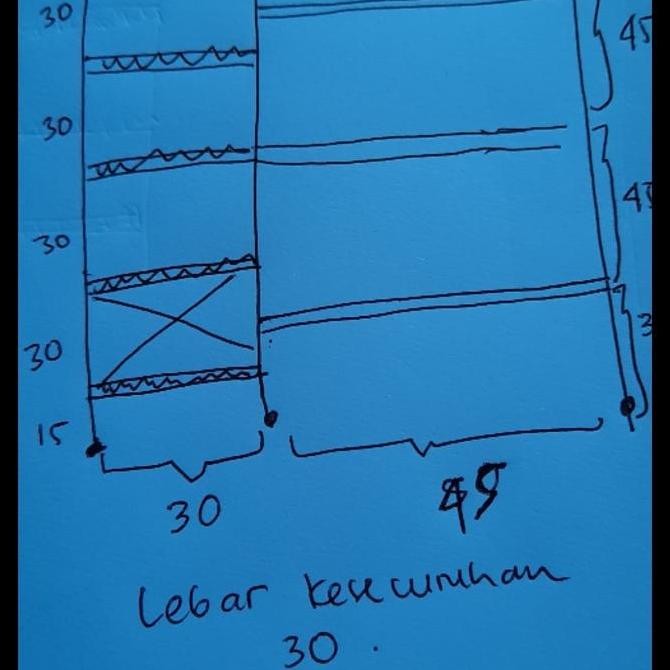 30
45
30
45
30
30
3
15
30
45
Lebar keseluruhan
30.